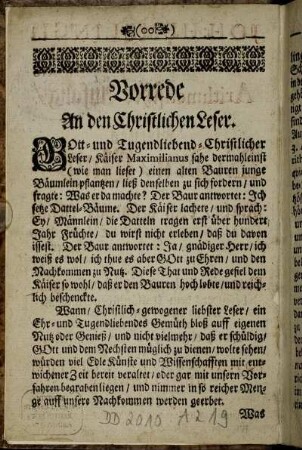 (00)
Vorrede
An den Christlichen Leser.
GOtt- und Tugendliebend-Christlicher
Leser / Käiser Maximilianus sahe dermahleinst
(wie man lieset) einen alten Bauren junge
Bäumlein pflantzen / ließ denselben zu sich fordern / und
fragte: Was er da machte? Der Baur antwortet: Ich
setze Dattel-Bäume. Der Käiser lachete / und sprach:
Ey / Männlein / die Datteln tragen erst über hundert
Jahr Früchte / du wirst nicht erleben / daß du davon
issest. Der Baur antwortet: Ja / gnädiger Herr / ich
weiß es wol / ich thue es aber GOtt zu Ehren / und den
Nachkommen zu Nutz. Diese That und Rede gefiel dem
Käiser so wohl / daß er den Bauren hoch lobte / und reich-
lich beschenckte.
Wann / Christlich-gewogener liebster Leser / ein
Ehr- und Tugendliebendes Gemüth bloß auff eigenen
Nutz oder Genieß / und nicht vielmehr / daß er schüldig /
GOtt und dem Nechsten müglich zu dienen / wolte sehen /
würden viel Edle Künste und Wissenschafften mit ent-
wichener Zeit bereit veraltet / oder gar mit unsern Vor-
fahren begraben liegen / und nimmer in so reicher Men-
ge auff unsere Nachkommen werden geerbet.
Was
DD 2010 A 219